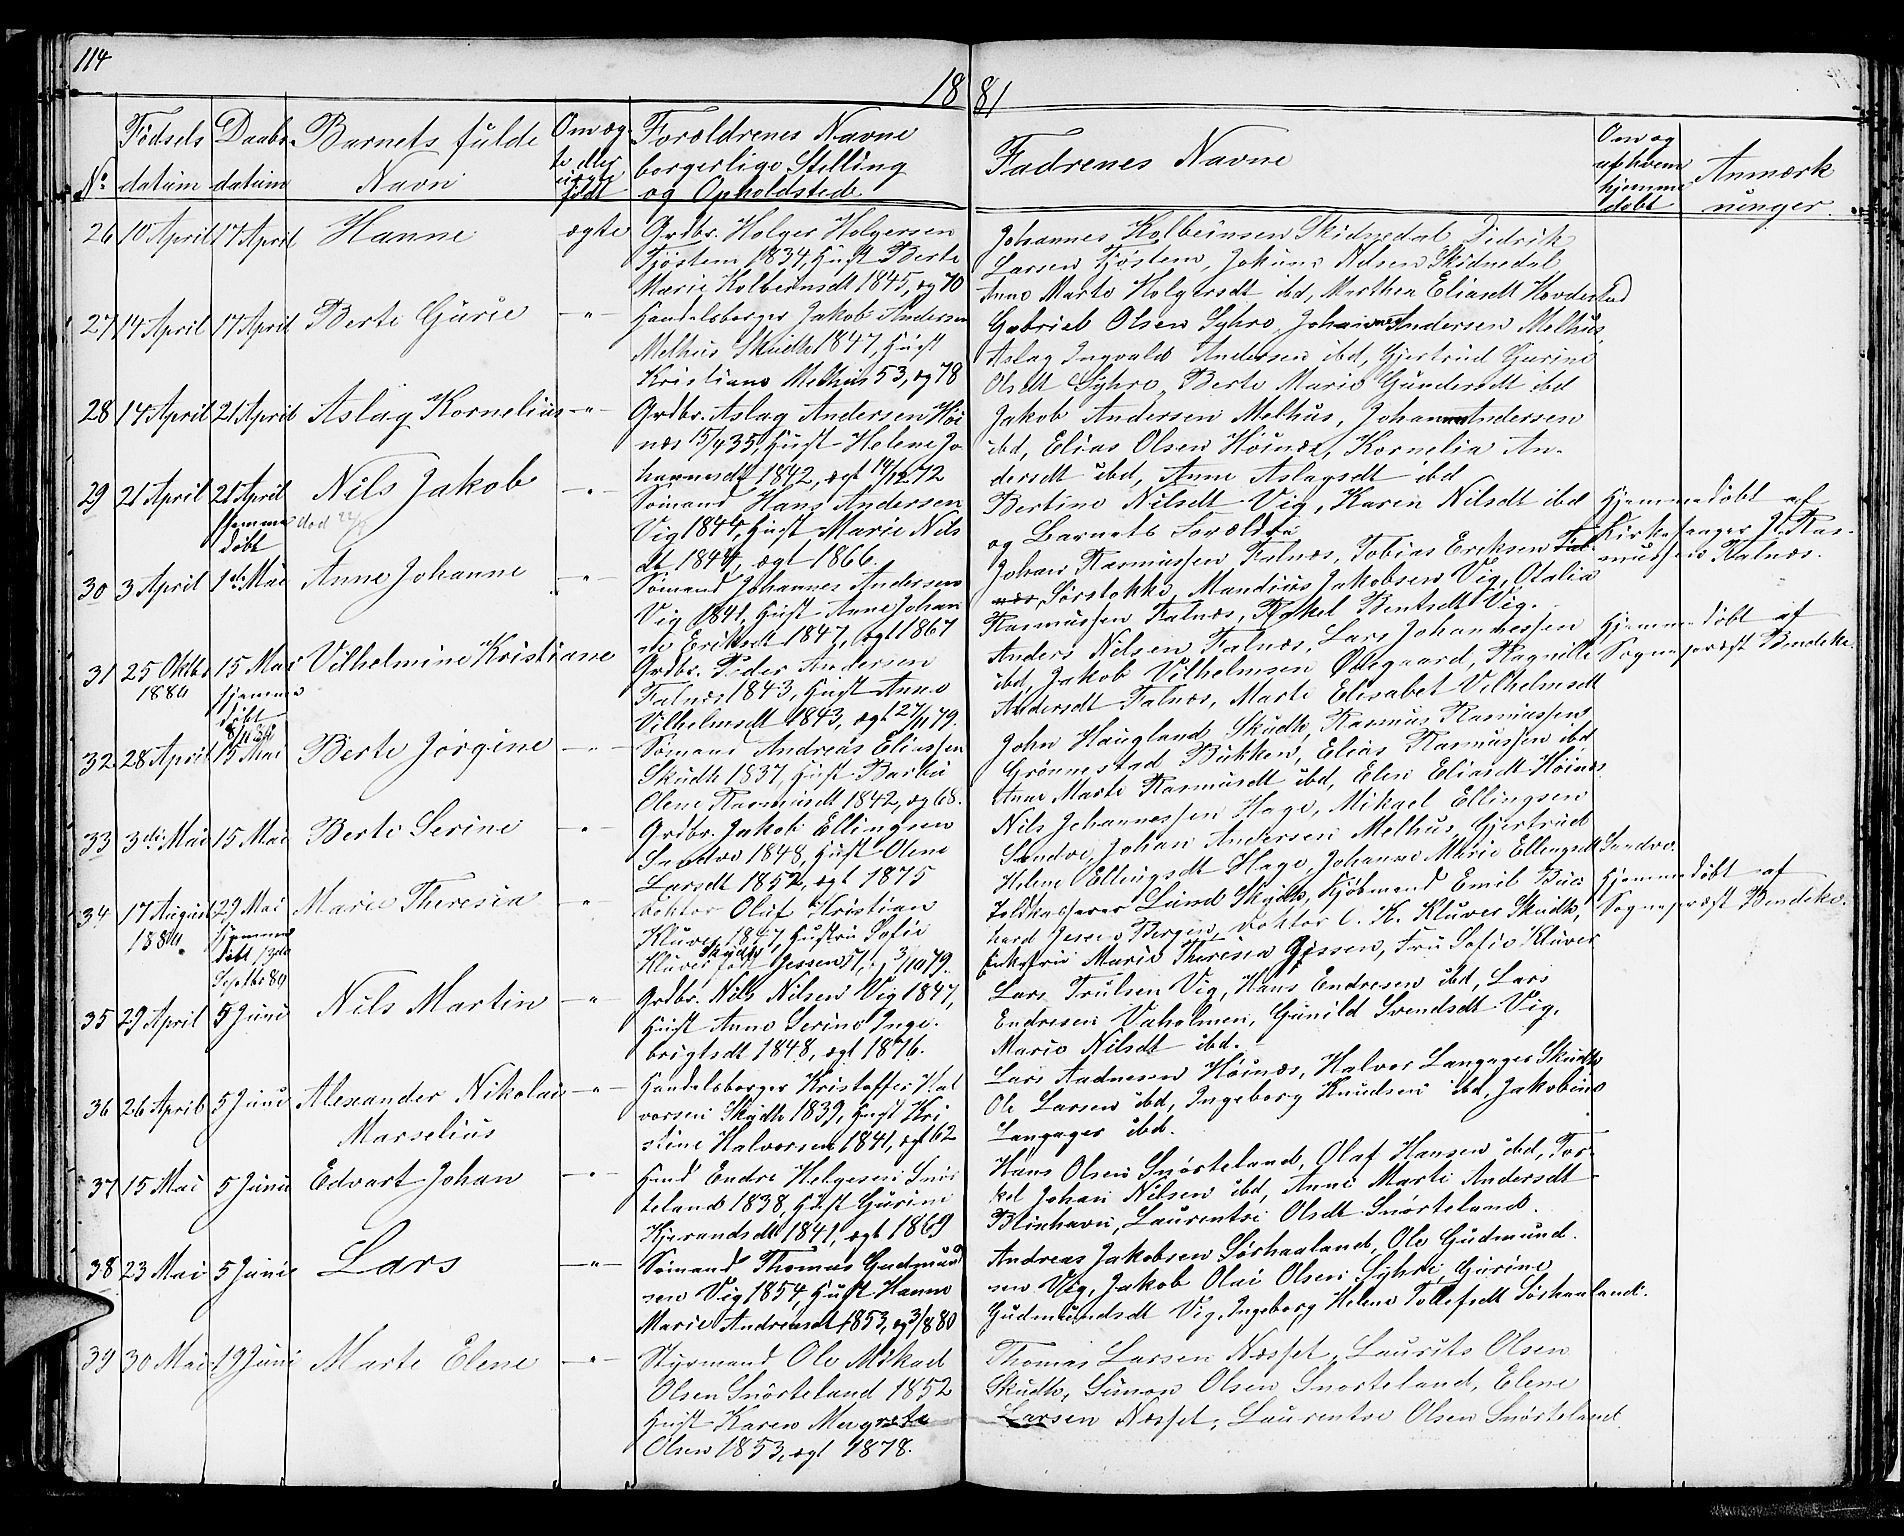 114
18 81
No
Fødsels datum
Daabs datum
Barnets fulde Navn
Om ægte eller uægte født
Forældrenes Navne borgerlige Stilling og Opholdsted.
Fadrenes Navne
Om og af hvem hjemmedøbt
Anmærkninger.
26 10 April 17 April Hanne ægte Grdbr. Holger Holgersen
Tjøstem 1834, Hust Berte
Marie Kolbeinsdt 1845, æg 70
Johannes Kolbeinsen Skidnedal, Didrik
Larsen Tjøstem, Jokum Nilsen Skidnedal
Anne Marte Holgersdt ibd, Marthea Eliasdt Hovdestad
27 14 April 17 April Berte Gurie -"- Handelsborger Jakob Andersen
Melhus Skudh 1847, Hust
Kristiane Melhus 53, æg 78
Gabriel Olsen Syhro, Johannes Andersen Melhus,
Aslag Ingvald Andersen ibd, Gjertrud Gurine
Olsdt Syhro, Berte Marie Gundersdt ibd
28 14 April 21 April Aslag Kornelius -"- Grdbr. Aslag Andersen Høi
næs 15/4 35, Hust Helene Jo
hannesdt 1842, ægt 14/12 72
Jakob Andersen Melhus, Johannes Andersen
ibd, Elias Olsen Høinæs, Kornelia An-
dersdt ibd, Anne Aslagsdt ibd
29 21 April 21 April Nils Jakob -"- Sømand Hans Andersen
Hjemme
døbt
død
Vig 1844, Hust Marie Nils
dt 1844, ægt 1866.
Bertine Nilsdt Vig, Karen Nilsdt ibd
og Barnets Forældre
Hjemmedøbt af
Kirkesanger J. Ras-
mussen Falnæs.
30 3 April 1ste Mai Anne Johanne -"- Sømand Johannes Andersen
Vig 1841, Hust Anne Johan
ne Eriksdt 1847, ægt 1867
Johan Rasmussen Falnæs, Tobias Eriksen Fal-
næs Sørstokke, Mandrius Jakobsen Vig, Otalia
Rasmussen Falnæs, Rakel Bentsdt Vig.
31 25 Oktbr 1880 15 Mai Vilhelmine Kristiane
Hjemme
døbt
Grdbr. Peder Andersen
Falnæs 1843, Hust Anne
Vilhelmsdt 1843, ægt 27/11 79.
Anders Nilsen Falnæs, Lars Johannessen
ibd, Jakob Vilhelmsen Ødegaard, Ragnille
Andersdt Falnæs, Marte Elisabet Vilhelmsdt
Hjemmedøbt af
Sogneprest Bendeke.
32 28 April 15 Mai Berte Jørgine -"- Sømand Andreas Eliassen
Skudh 1837, Hust Barbu
Olene Rasmusdt 1842, æg 68.
John Haugland Skudh, Rasmus Rasmussen
Grønnestad Bukken, Elias Rasmussen ibd
Anne Marte Rasmusdt ibd, Elen Eliasdt Høinæs
33 3die Mai 15 Mai Berte Serine -"- Grdbr. Jakob Ellingsen
Sandve 1848, Hust Olene
Larsdt 1852, ægt 1875
Nils Johannessen Hage, Mikael Ellingsen
Sandve, Johan Andersen Melhus, Gjertrud
Helene Ellingsdt Hage, Johanne Marie Ellingsdt Sandve.
34 17 August 1880. 29 Mai Marie Theresia -"- Doktor Oluf Kristian
Hjemme
døbt 13de
Septbr 80
Kluver 1847, Hustru Sofie
Kluver født Jessen 51, 3/10 79.
Toldkasserer Lund Skudh, Kjøbmand Emil Buc
hard Jessen Bergen, Doktor C. K. Kluver Skudh,
Enkefru Marie Theresia Jessen, Fru Sofie Kluver
Hjemmedøbt af
Sogneprest Bendeke.
35 29 April 5 Juni Nils Martin -"- Grdbr. Nils Nilsen Vig 1847,
Hust Anne Serine Inge-
brigtsdt 1848, ægt 1876.
Lars Trulsen Vig, Hans Endresen ibd, Lars
Endresen Vaholmen, Gunild Svendsdt Vig,
Marie Nilsdt ibd.
36 26 April 5 Juni Alexander Nikolai Marselius -"- Handelsborger Kristoffer Hal
vorsen Skudh 1839, Hust Kri
stine Halvorsen 1841, ægt 62
Lars Aadnesen Høinæs, Halvor Langager Skudh
Ole Larsen ibd, Ingeborg Knudsen ibd, Jakobine
Langager ibd.
37 15 Mai 5 Juni Edvart Johan -"- Hmd Endre Helgesen Snør
teland 1838, Hust Gurine
Hjerandsdt 1841, ægt 1869
Hans Olsen Snørteland, Olaf Hansen ibd, Tor-
kel Johan Nilsen ibd, Anne Marte Andersdt
Blixhavn, Laurentse Olsdt Snørteland.
38 23 Mai 5 Juni Lars -"- Sømand Thomas Gudmund
sen Vig 1854, Hust Hanne
Marie Andreasdt 1853, æg 3/8 80
Andreas Jakobsen Sørhaaland, Ole Gudmund-
sen Vig, Jakob Olai Olsen Syhre, Gurine
Gudmundsdt Vig, Ingeborg Helene Tollefsdt Sørhaaland.
39 30 Mai 19 Juni Marte Elene -"- Styrmand Ole Mikael
Olsen Snørteland 1852
Hust Karen Margrete
Olsen 1853, ægt 1878.
Thomas Larsen Næsset, Laurits Olsen
Skudh, Simon Olsen Snørteland, Elene
Larsen Næsset, Laurentse Olsen Snørteland.